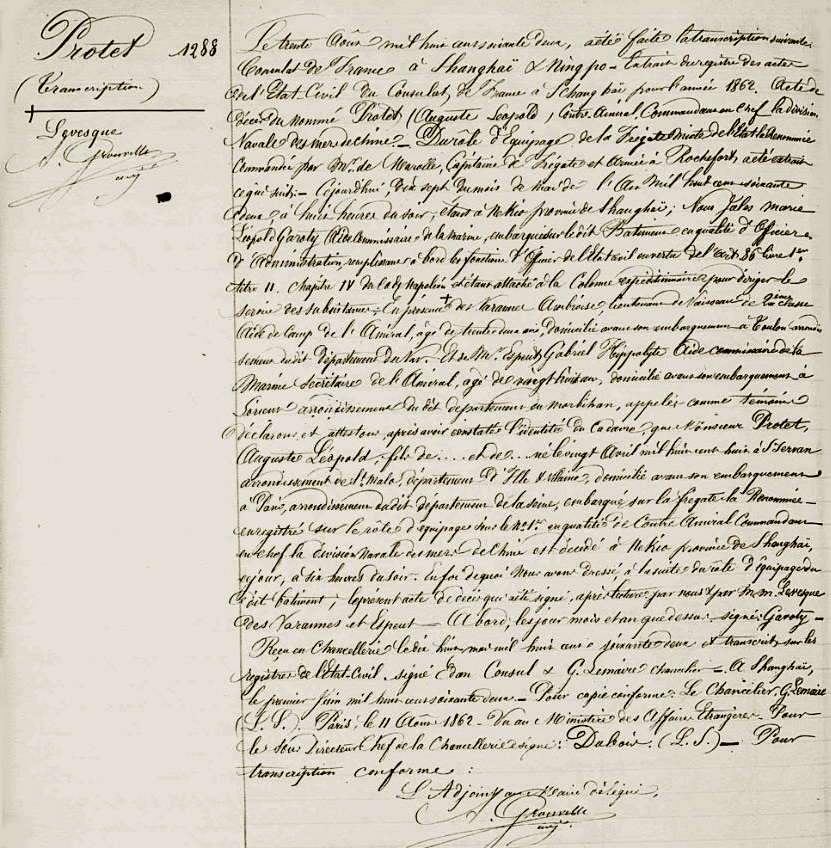 Protet 1288
(Transcription)
Levesque
A. Grouvelle
adj.
Le trente Août mil huit cent soixante deux, a été faite la transcription suivante:
Consulat de France à Shanghaï & Ning po - Extrait du registre des actes
de l'Etat Civil du Consulat de France à Shang haï pour l'année 1862. Acte de
décès du nommé Protet (Auguste Léopold) Contre Amiral Commandant en Chef la division
Navale des mers de chine. - Du rôle d'Equipage de la Frégate mixte de l'Etat la Renommée
Commandée par Mr. de Marolle, Capitaine de Frégate et Armée à Rochefort, a été extrait
ce qui suit: - Cejourd'hui dix sept du mois de mai de l'An Mil huit cent soixante
deux, à huit heures du soir, étant à Né Kio province de Shanghaï; Nous Jules marie
Léopold Garoty Aide Commissaire de la marine, embarqué sur le dit Batiment en qualité d'Officier
d'Administration, remplissant à bord les fonctions d'Officier de l'Etat civil en vertu de l'art. 86 livre 1er
titre II, Chapitre IV du Code Napoléon & étant attaché à la Colonne expéditionnaire pour diriger le
service des subsistances; En présence + des Varannes Ambroise, lieutenant de Vaisseau de 2ème classe
Aide de Camp de l'Amiral, âgé de trente deux ans, domicilié avant son embarquement à Toulon arrondis
sement dudit Département du Var. Et de Mr. Espeut Gabriel Hippolyte Aide commissaire de la
Marine Secrétaire de l'Amiral, âgé de vingt huit ans, domicilié avant son embarquement à
Lorient arrondissement du dit département du morbihan, appelés comme témoins
déclarons et attestons, après avoir constaté l'identité du Cadavre, que Monsieur Protet,
Auguste Léopold, fils de ... et de ... né le vingt Avril mil huit cent huit à St Servan
arrondissement de St. Malo, département d'Ille & Vilaine, domicilié avant son embarquement
à Paris, arrondissement dudit département de la seine, embarqué sur la frégate la Renommée
enregistré sur le rôle d'équipage sous le No. 1er en qualité de Contre Amiral Commandant
en chef la division Navale des mers de Chine est décédé à Né Kio province de Shanghaï,
ce jour, à six heures du soir. En foi de quoi Nous avons dressé, à la suite du rôle d'équipage du
dit bâtiment, le présent acte de décès qui a été signé, après lecture par nous & par M.M. Levesque
des Varannes et Espeut - A bord, les jour mois et an que dessus. signé: Garoty -
Reçu en Chancellerie le dix huit mai mil huit cent soixante deux et transcrit sur les
registres de l'Etat-Civil. signé Edan Consul & G. Lemaire chancelier - A Shanghaï,
le premier Juin mil huit cent soixante deux. - Pour copie conforme. Le Chancelier, G. Lemaire
(L. S.). Paris, le 11 Août 1862 - Vu au Ministère des Affaires Etrangères - Pour
le Sous Directeur Chef de la Chancellerie signé: Dubois. (L. S.) - Pour
transcription conforme :
L'Adjoint au Maire délégué,
A. Grouvelle
adj.